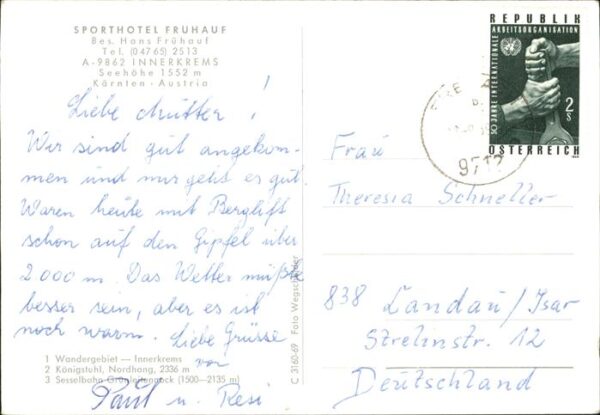 SPORTHOTEL FRÜHAUF
Bes. Hans Frühauf
Tel. (0 47 65) 2513
A-9862 INNERKREMS
Seehöhe 1552 m
Kärnten - Austria
Liebe Mutter!
Wir sind gut angekom-
men und mir geht es gut.
Waren heute mit Berglift
schon auf den Gipfel über
2000 m. Das Wetter müßte
besser sein, aber es ist
noch warm. Liebe Grüsse
von
Paul u. Resi
1 Wandergebiet — Innerkrems
2 Königstuhl, Nordhang, 2336 m
3 Sesselbahn Grünleitennock (1500—2135 m)
C 3160-69 Foto Wegscheider
REPUBLIK
INTERNATIONALE ARBEITSORGANISATION
50 JAHRE
2 S
ÖSTERREICH
Frau
Theresia Schneller
838 Landau/Isar
Strelinstr. 12
Deutschland